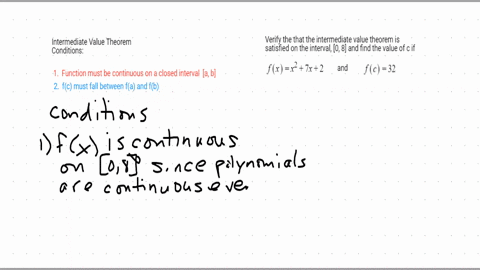 Intermediate Value Theorem
Conditions:
1. Function must be continuous on a closed interval [a, b]
2. f(c) must fall between f(a) and f(b)
Verify the that the intermediate value theorem is
satisfied on the interval, [0, 8] and find the value of c if
f(x)=x²+7x+2 and f(c)=32
conditions
1) f(x) is continuous
on [0,8] since polynomials
are continuous eve